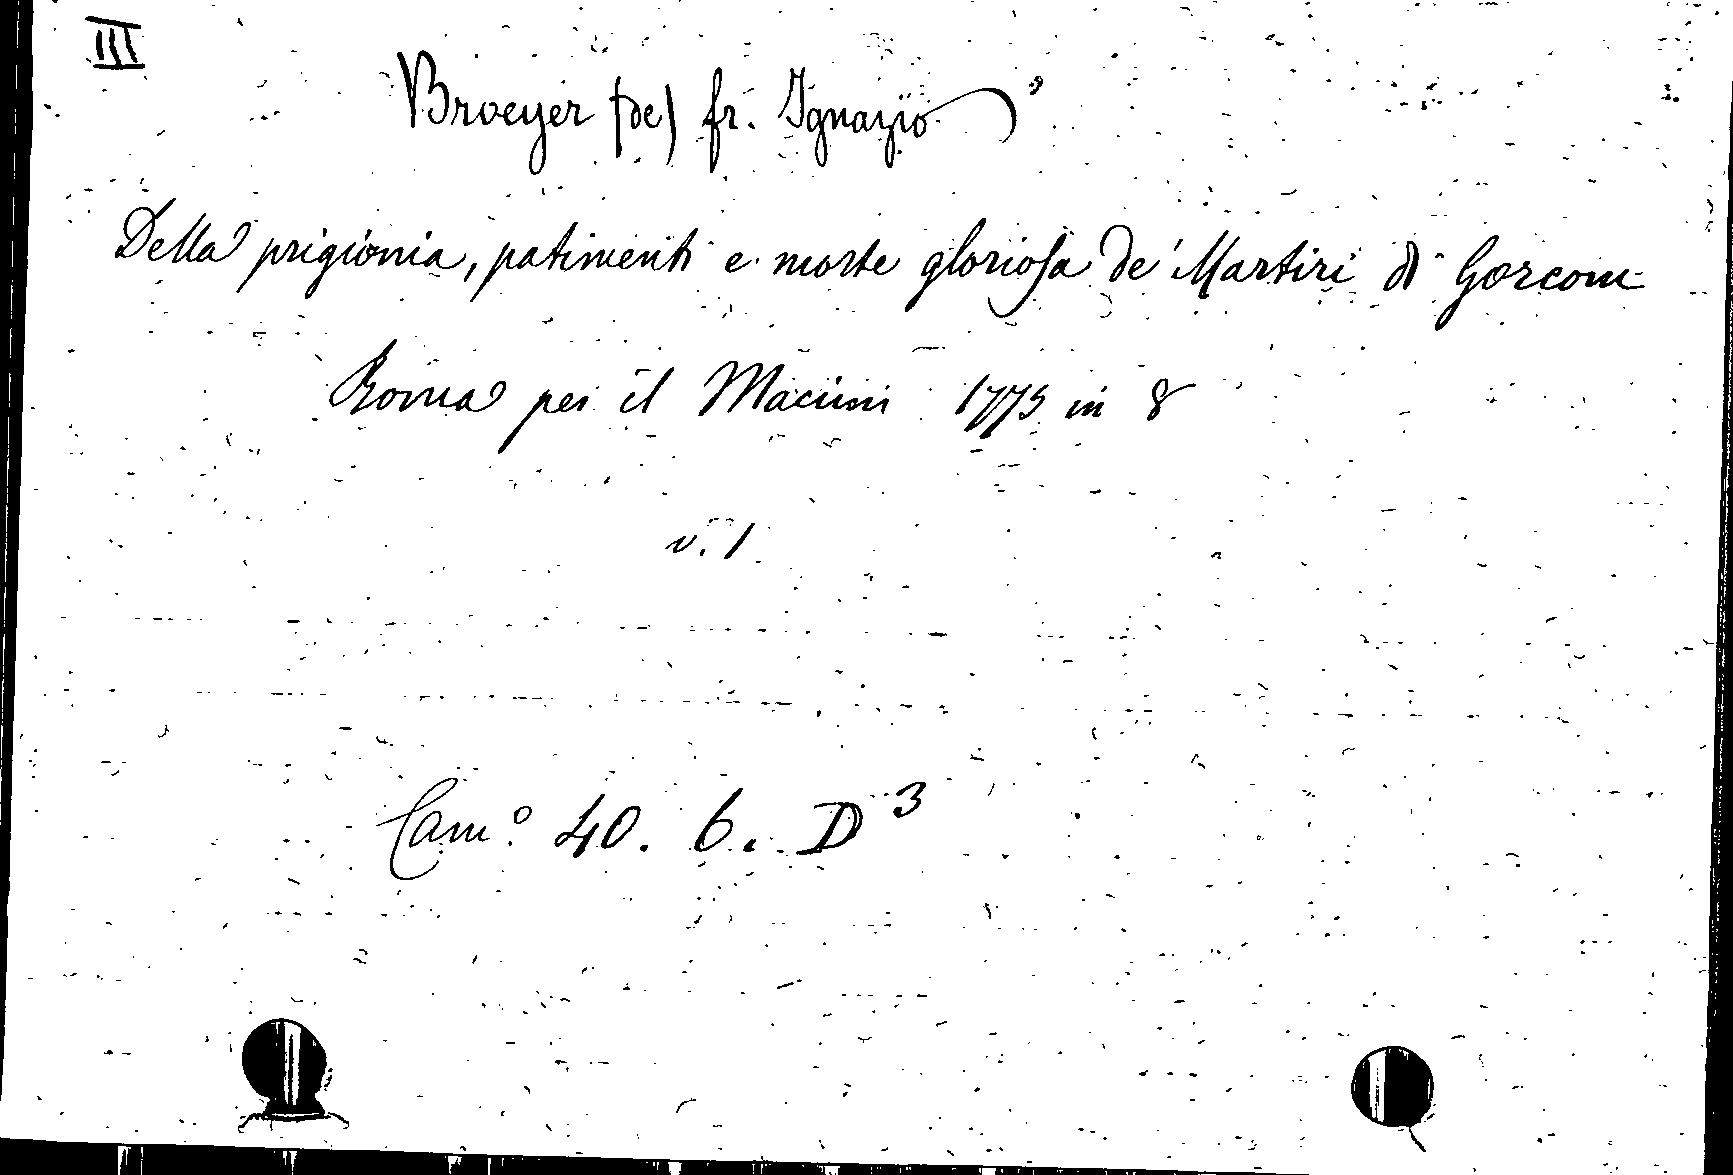 III
Broeyer (de) fr. Ignazio
Della prigionia, patimenti e morte gloriosa de' Martiri di Gorcom
Roma per il Macinni 1775 in 8
v. 1
Cam.º 40. 6. D 3